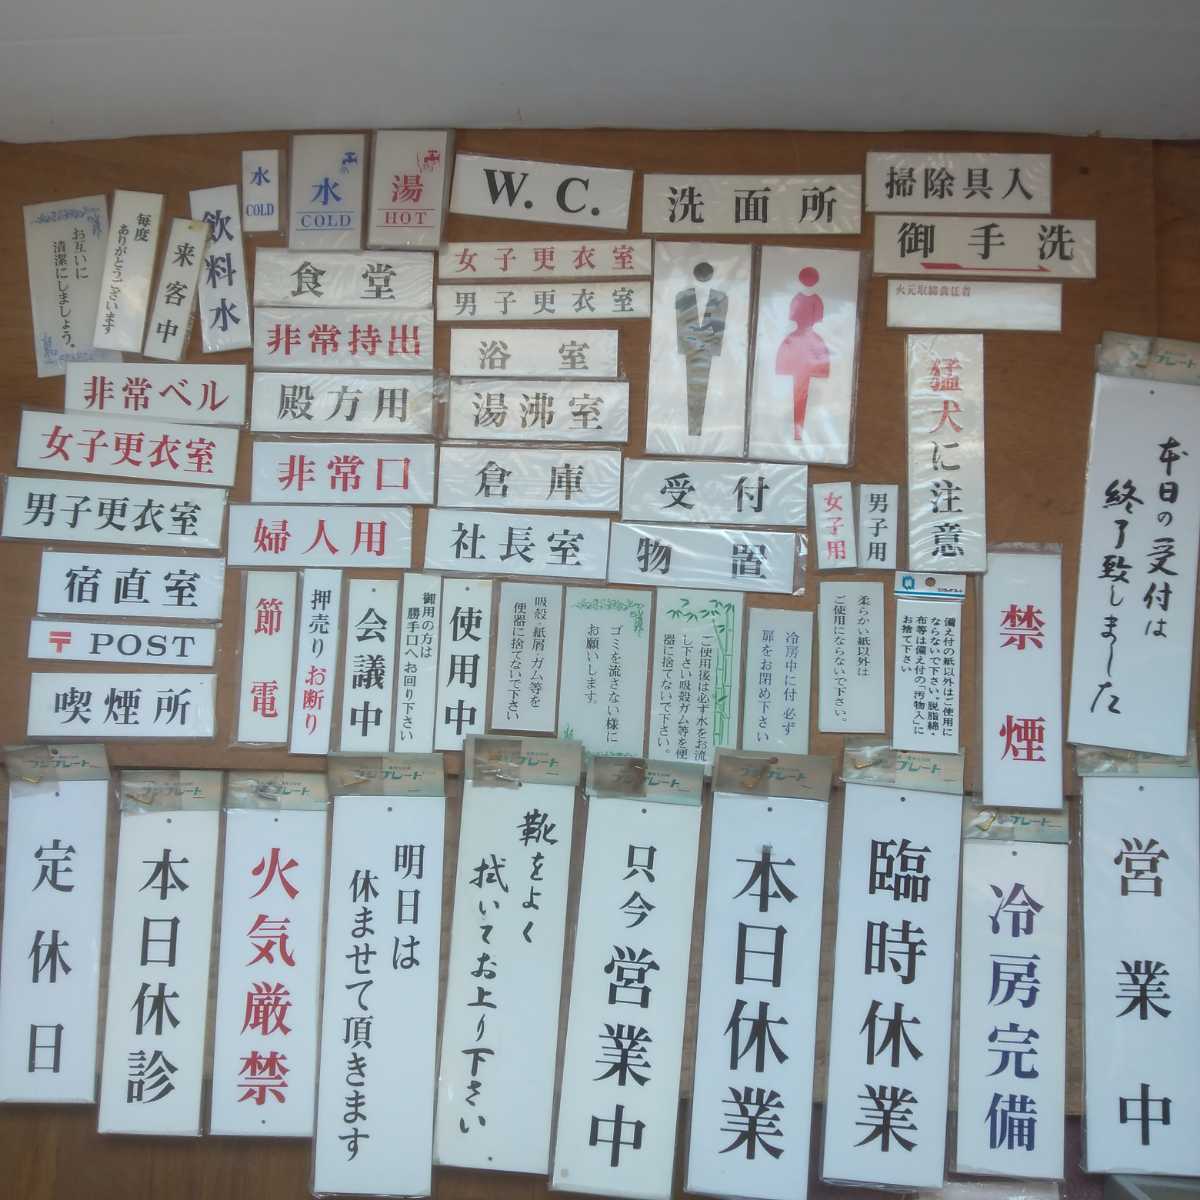 水
COLD
水
COLD
湯
HOT
W.C.
洗面所
掃除具入
御手洗
火元取締責任者
お互いに
清潔にしましょう。
毎度
ありがとうございます
来客中
飲料水
食堂
女子更衣室
男子更衣室
非常持出
浴室
非常ベル
殿方用
湯沸室
猛犬に注意
女子更衣室
非常口
倉庫
受付
女子用
男子用
男子更衣室
婦人用
社長室
物置
宿直室
POST
喫煙所
節電
押売りお断り
会議中
御用の方は
勝手口へお回り下さい
使用中
吸殻・紙屑・ガム等を
便器に捨てないで下さい
ゴミを流さない様に
お願いします。
ご使用後は必ず水をお流
し下さい吸殻ガム等を便
器に捨てないで下さい。
冷房中に付必ず
扉をお閉め下さい
柔らかい紙以外は
ご使用にならないで下さい。
備え付の紙以外はご使用に
ならないで下さい。脱脂綿・
布等は備え付の「汚物入」に
お捨て下さい
禁煙
本日の受付は
終了致しました
定休日
本日休診
火気厳禁
明日は
休ませて頂きます
靴をよく
拭いてお上り下さい
只今営業中
本日休業
臨時休業
冷房完備
営業中